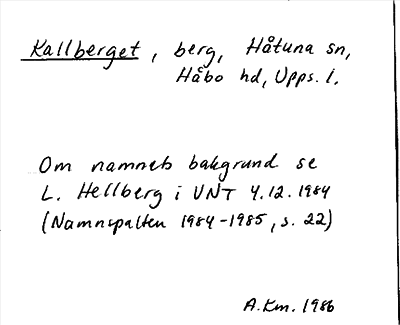 Kallberget, berg, Håtuna sn,
Håbo hd, Upps. l.
Om namnets bakgrund se
L. Hellberg i UNT 4.12.1984
(Namnspalten 1984-1985, s. 22)
A.Km. 1986